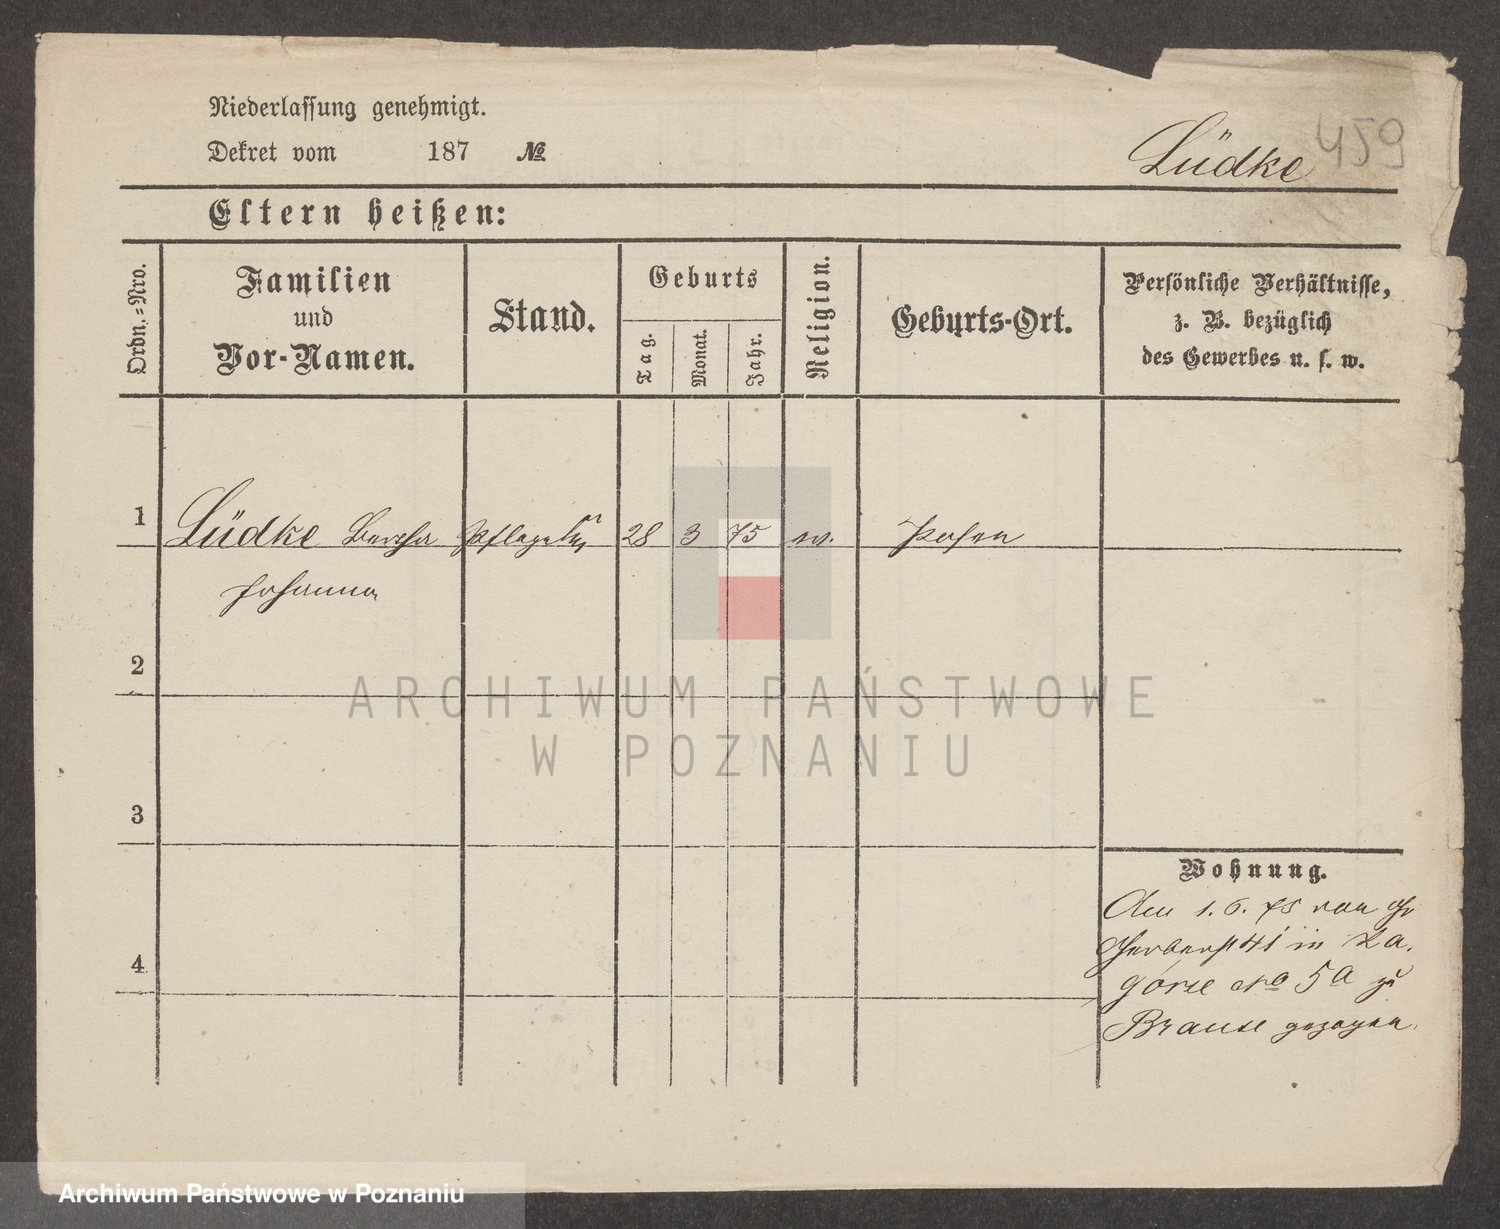 Niederlassung genehmigt.
Dekret vom 187 №
Lüdke 459
Eltern heißen:
Ordn.-Nro.
Familien
und
Vor-Namen.
Stand.
Geburts
Tag.
Monat.
Jahr.
Religion.
Geburts-Ort.
Persönliche Verhältnisse,
z. B. bezüglich
des Gewerbes u. s. w.
1 Lüdke Bertha 28 3 75 ev. Posen
Johanna
2
ARCHIWUM PAŃSTWOWE
W POZNANIU
3
Wohnung.
Am 1. 6. 75 von
41 in Za
4
górze No 5a zu
Brause gezogen.
Archiwum Państwowe w Poznaniu